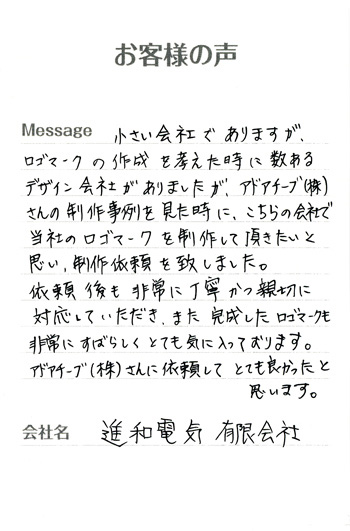 お客様の声
Message 小さい会社でありますが、
ロゴマークの作成を考えた時に数ある
デザイン会社がありましたが、アドアチーブ(株)
さんの制作事例を見た時に、こちらの会社で
当社のロゴマークを制作して頂きたいと
思い、制作依頼を致しました。
依頼後も非常に丁寧かつ親切に
対応していただき、また完成したロゴマークも
非常にすばらしくとても気に入っております。
アドアチーブ(株)さんに依頼してとても良かったと
思います。
会社名 進和電気 有限会社